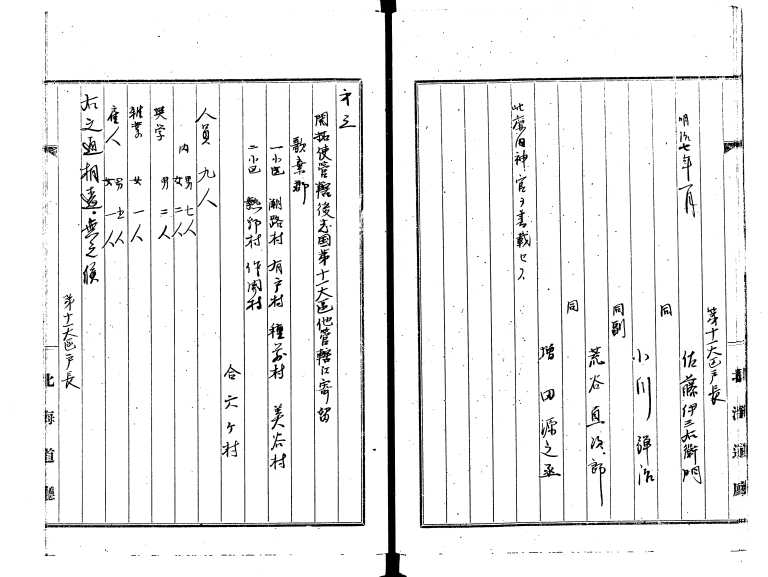 明治七年一月
第十一大区戸長
佐藤伊三右衛門
同
小川弾治
同副
荒谷直次郎
同
増田源之丞
此処旧神官ヲ書載セス
北海道廳
第三
開拓使管轄後志国第十一大区他管轄江寄留
歌棄郡
一小区 潮路村 有戸村 種前村 美谷村
二小区 熱郛村 作開村
合六ヶ村
人員 九人
内 男七人 女二人
男二人
雑業 女一人
雇人 男五人 女一人
右之通相違無之候
第十一大区戸長
北海道廳